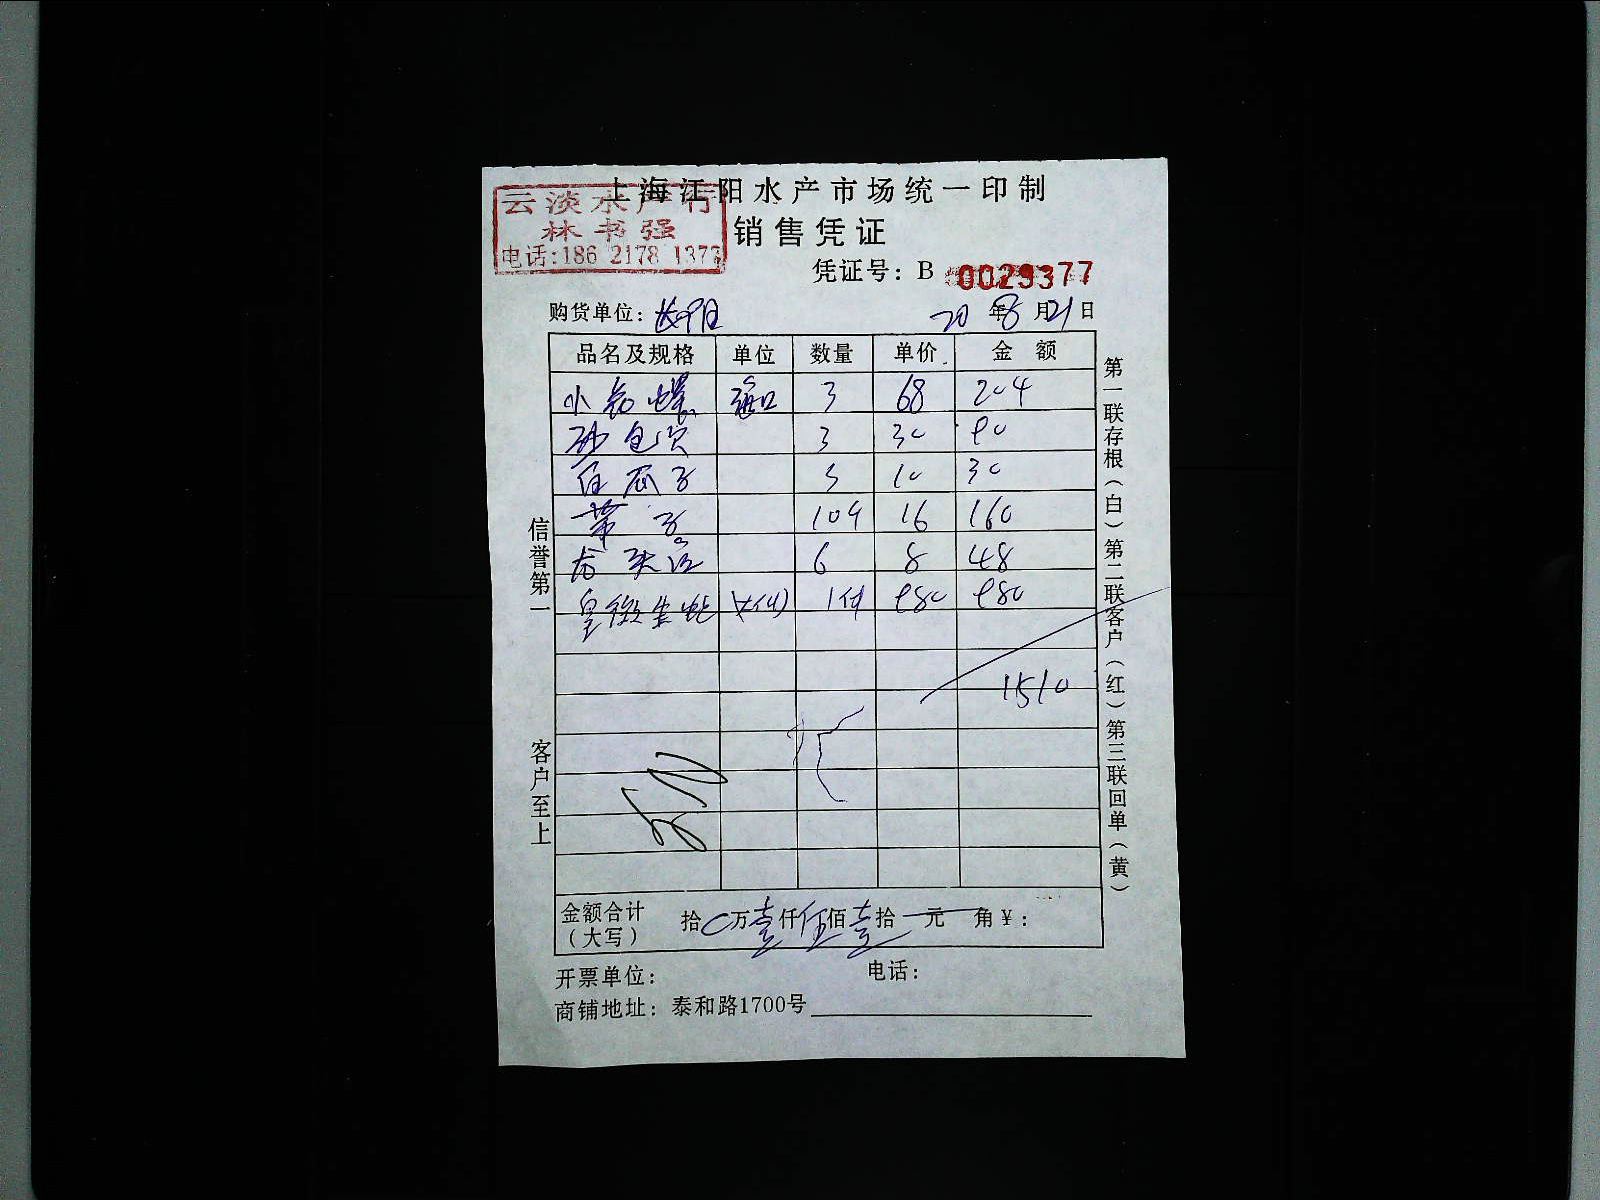 上海江阳水产市场统一印制
云淡水产行
林书强
电话:186 2178 1377
销售凭证
凭证号: B 0029377
购货单位:
20 年 8 月 21 日
品名及规格 单位 数量 单价 金额
小 螺 3 68 204
3 30 90
白瓜子 3 10 30
带子 10 16 160
龙头 6 8 48
皇 生蚝 1件 980 980
1510
金额合计
(大写) 拾 0 万 壹 仟 伍 佰 壹 拾 元 角 ¥:
开票单位: 电话:
商铺地址: 泰和路1700号
信誉第一 客户至上
第一联存根(白)第二联客户(红)第三联回单(黄)